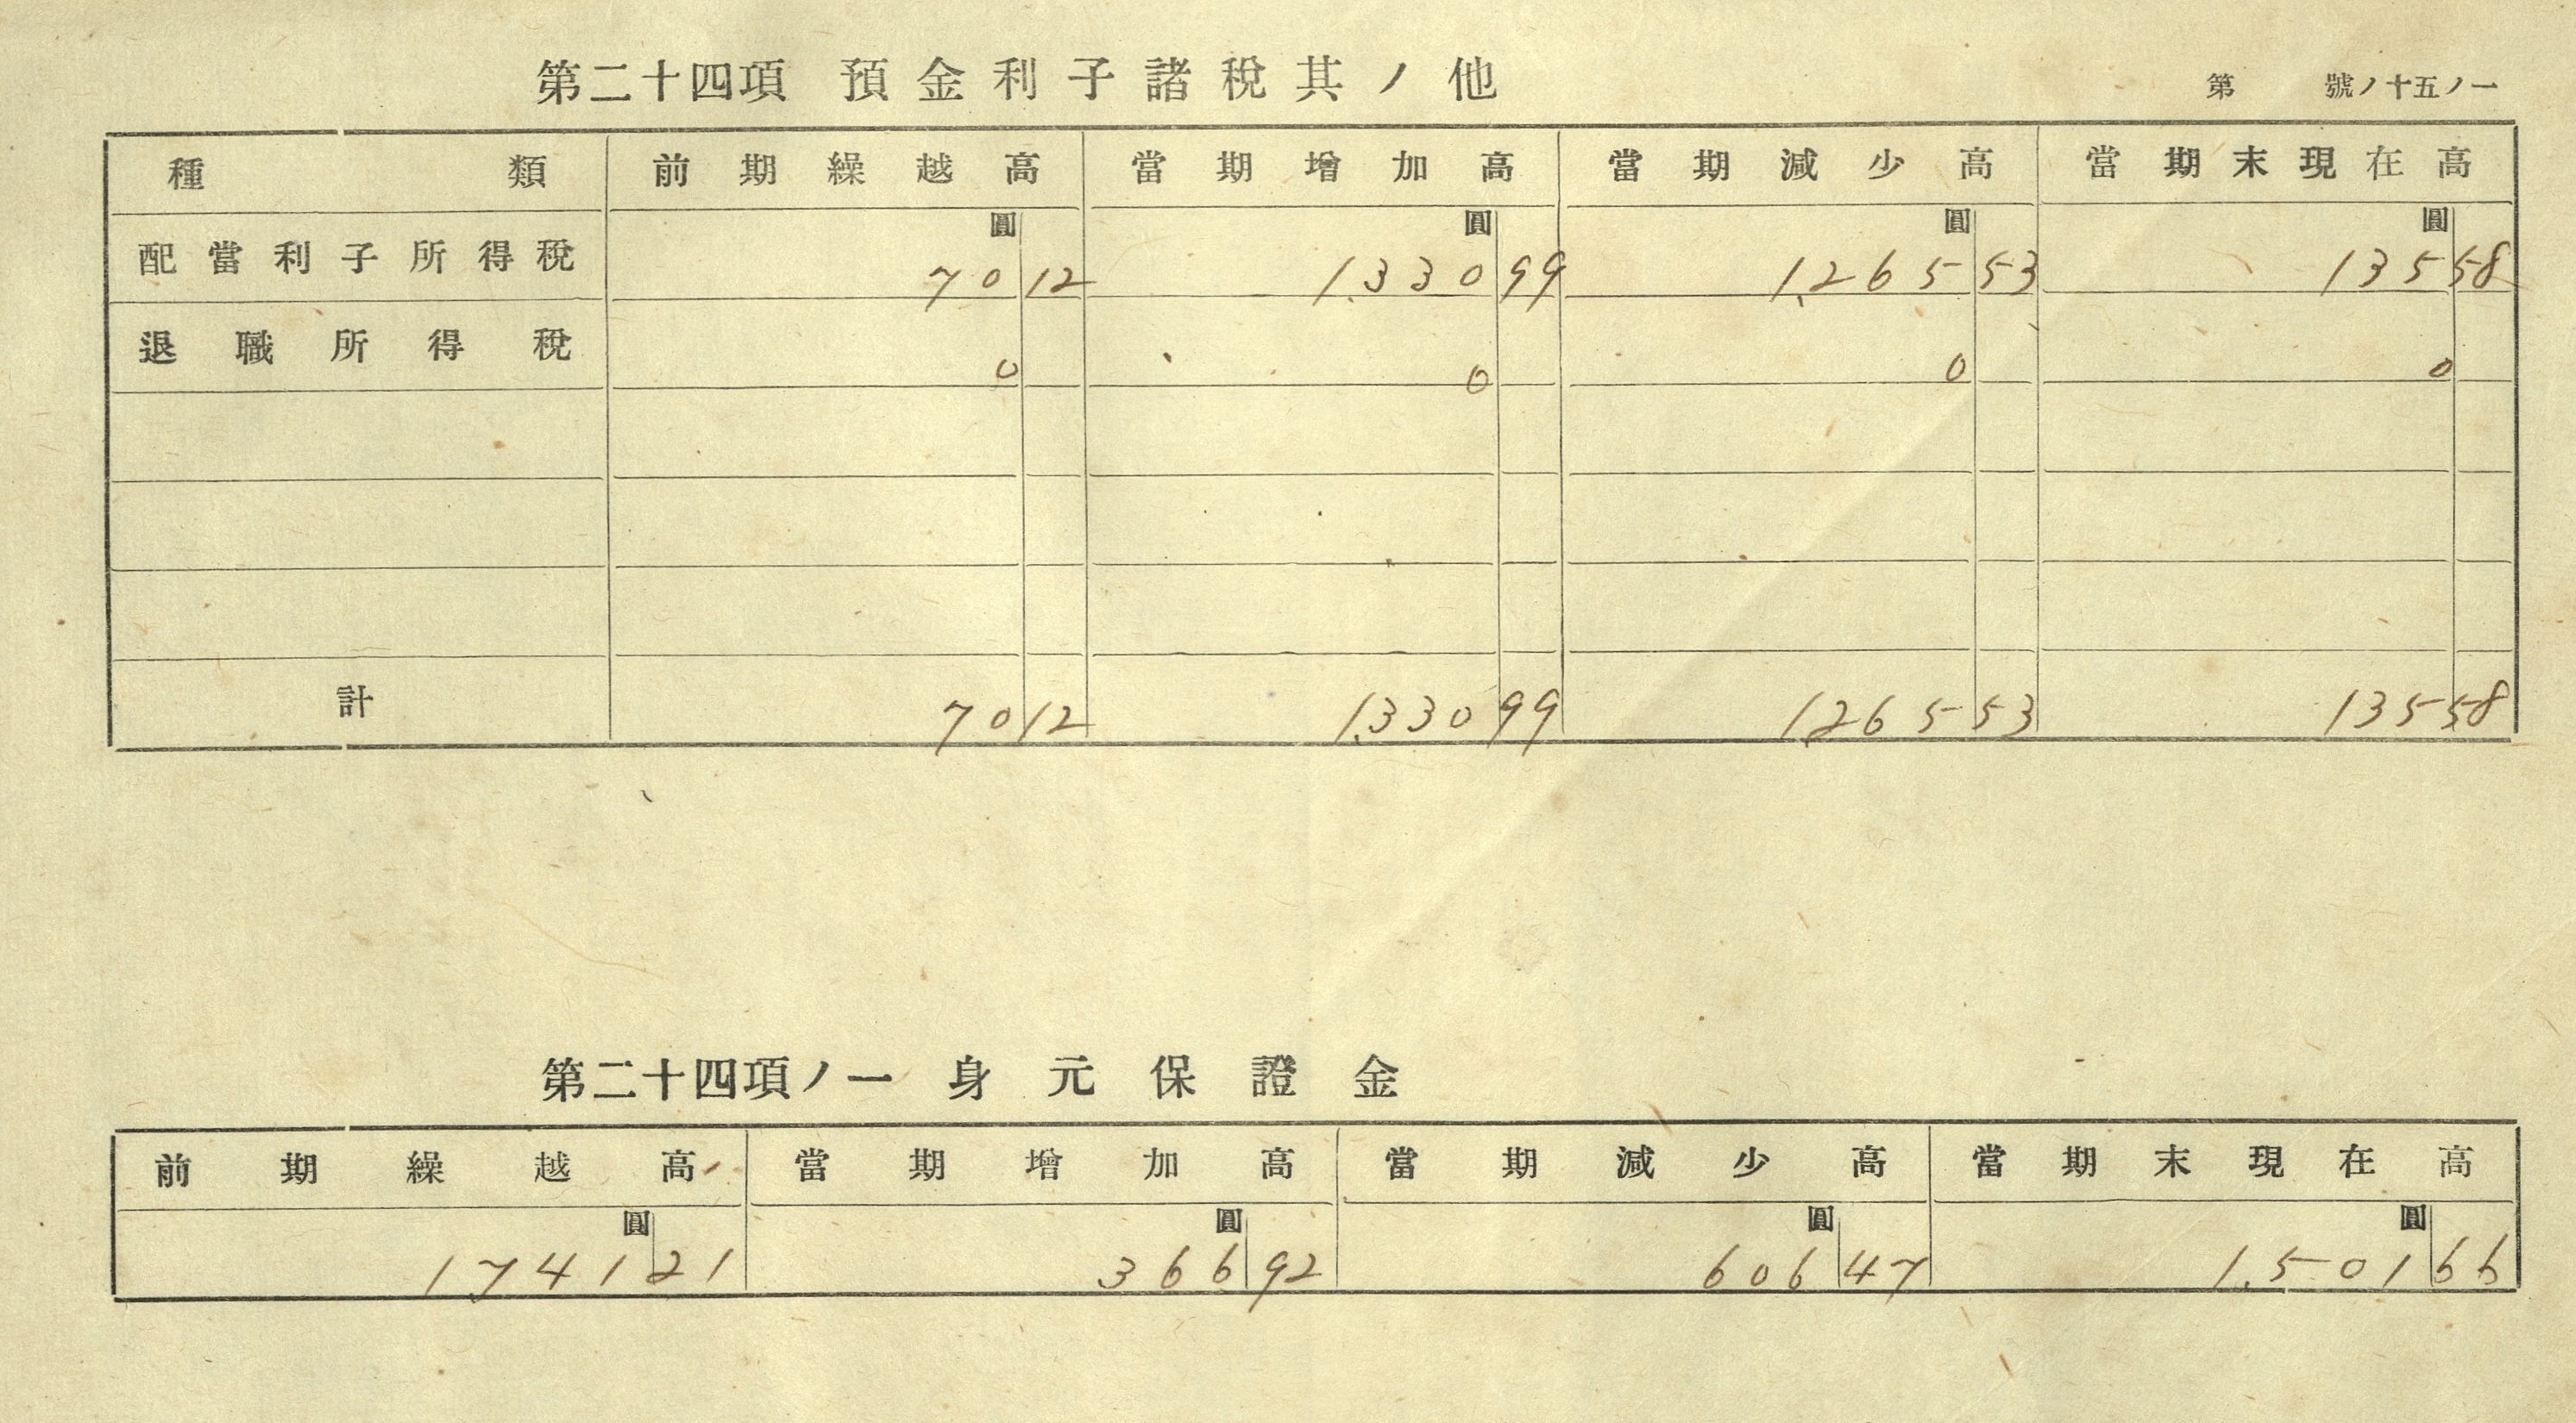 第二十四項 預金利子諸稅其ノ他
第 號ノ十五ノ一
種類 前期繰越高 當期增加高 當期減少高 當期末現在高
圓 圓 圓 圓
配當利子所得稅 70 12 1,330 99 1,265 53 135 58
退職所得稅 0 0 0 0
計 70 12 1,330 99 1,265 53 135 58
第二十四項ノ一 身元保證金
前期繰越高 當期增加高 當期減少高 當期末現在高
圓 圓 圓 圓
1741 21 366 92 606 47 1,501 66